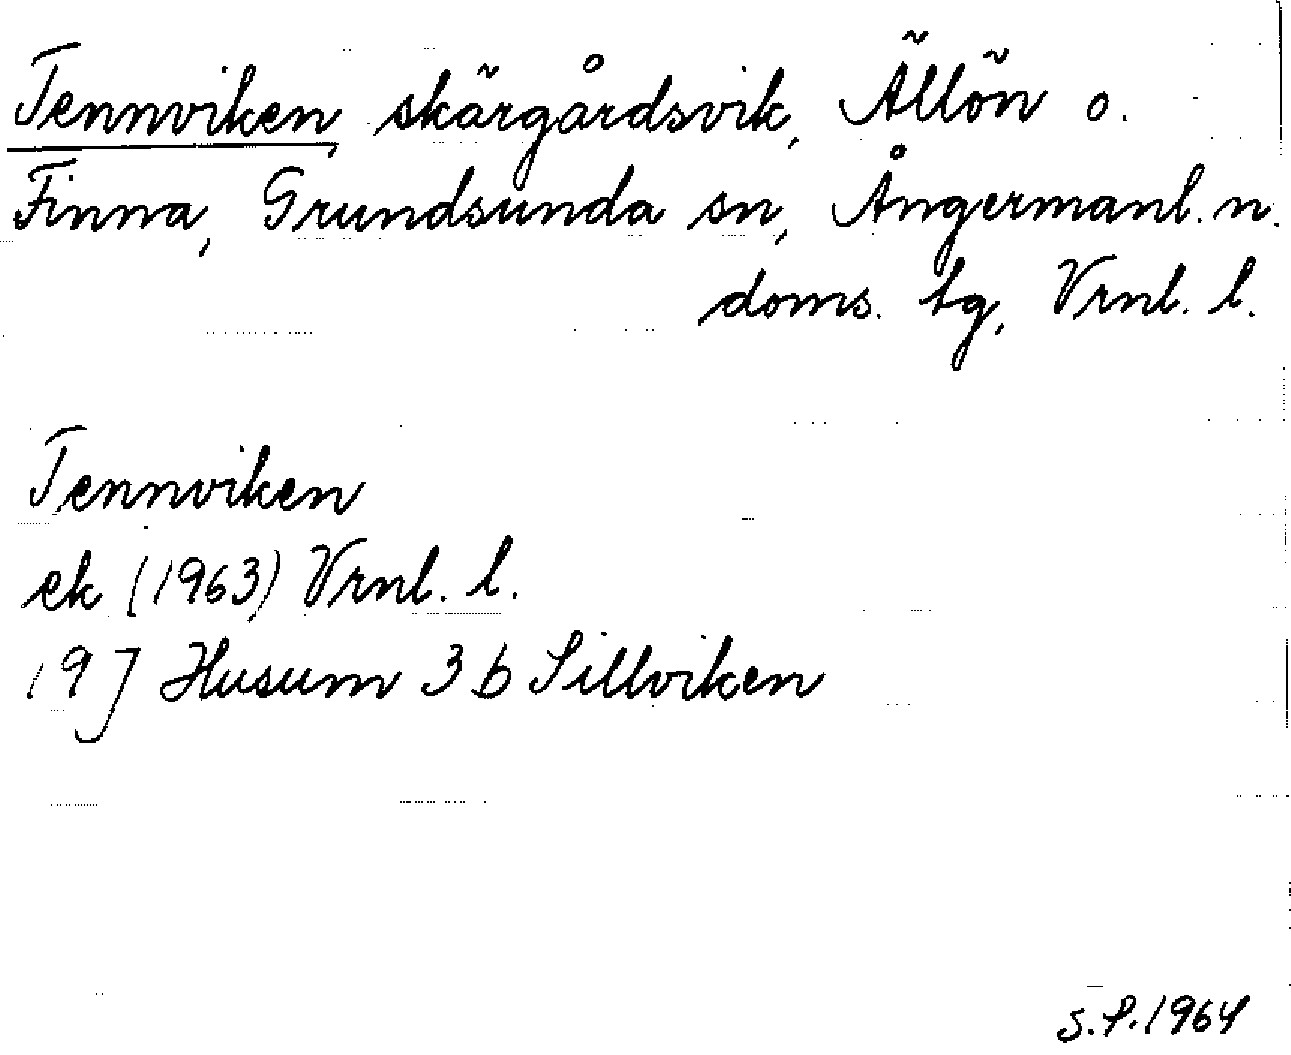 Tennviken, skärgårdsvik, Ällön o.
Finna, Grundsunda sn, Ångermanl. n.
doms. tg, Vrnl. l.
Tennviken
ek (1963) Vrnl. l.
19 J Husum 3 b Sillviken
S.P. 1964